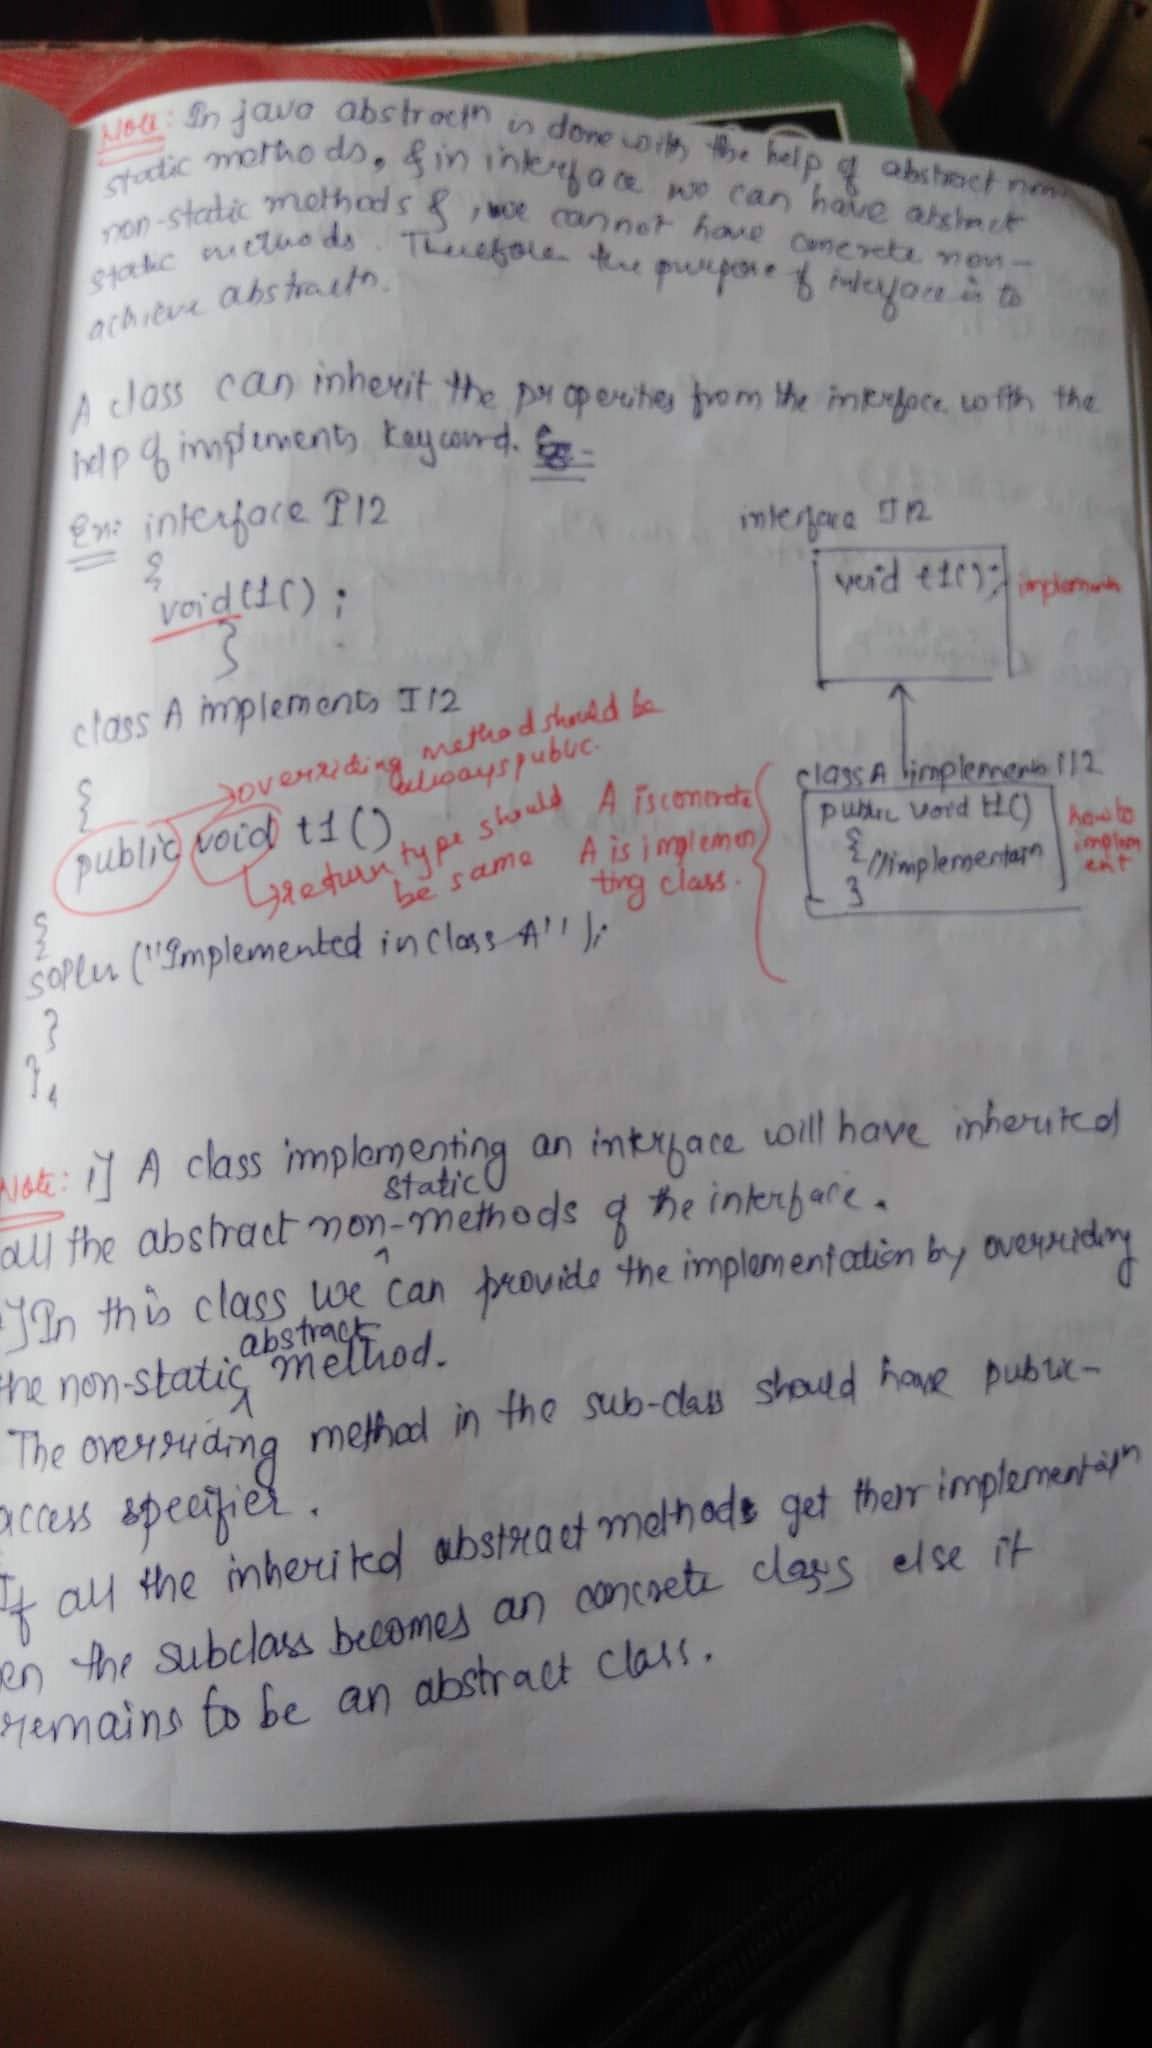 Note: In java abstractn is done with the help of abstract non
static methods, & in interface we can have abstract
non-static methods & , we cannot have concrete non-
static methods. Therefore the purpose of interface is to
achieve abstractn.
A class can inherit the properities from the interface with the
help of implements keyword.
Ex: interface I12
{
void t1() ;
}
class A implements I12
{
→ overriding method should be
always public.
public void t1()
↳ return type should
be same
{
sopln ("Implemented in class A" );
}
}
interface I12
void t1();
implements
class A implements I12
public void t1()
{
//implementain
}
how to
implem
ent
A is concrete
A is implemen
ting class.
Note: i] A class implementing an interface will have inherited
all the abstract non-static methods of the interface.
i] In this class we can provide the implementation by overriding
the non-static abstract method.
The overriding method in the sub-class should have public-
access specifier.
If all the inherited abstract methods get their implementain
en the subclass becomes an concrete class else it
remains to be an abstract class.